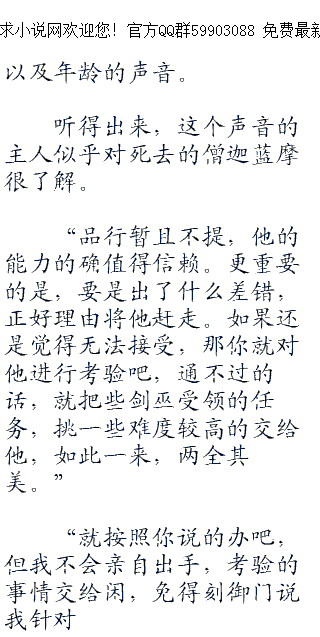 求小说网欢迎您! 官方QQ群59903088 免费最新
以及年龄的声音。
听得出来，这个声音的
主人似乎对死去的僧迦蓝摩
很了解。
“品行暂且不提，他的
能力的确值得信赖。更重要
的是，要是出了什么差错，
正好理由将他赶走。如果还
是觉得无法接受，那你就对
他进行考验吧，通不过的
话，就把些剑巫受领的任
务，挑一些难度较高的交给
他，如此一来，两全其
美。”
“就按照你说的办吧，
但我不会亲自出手，考验的
事情交给闲，免得刻御门说
我针对